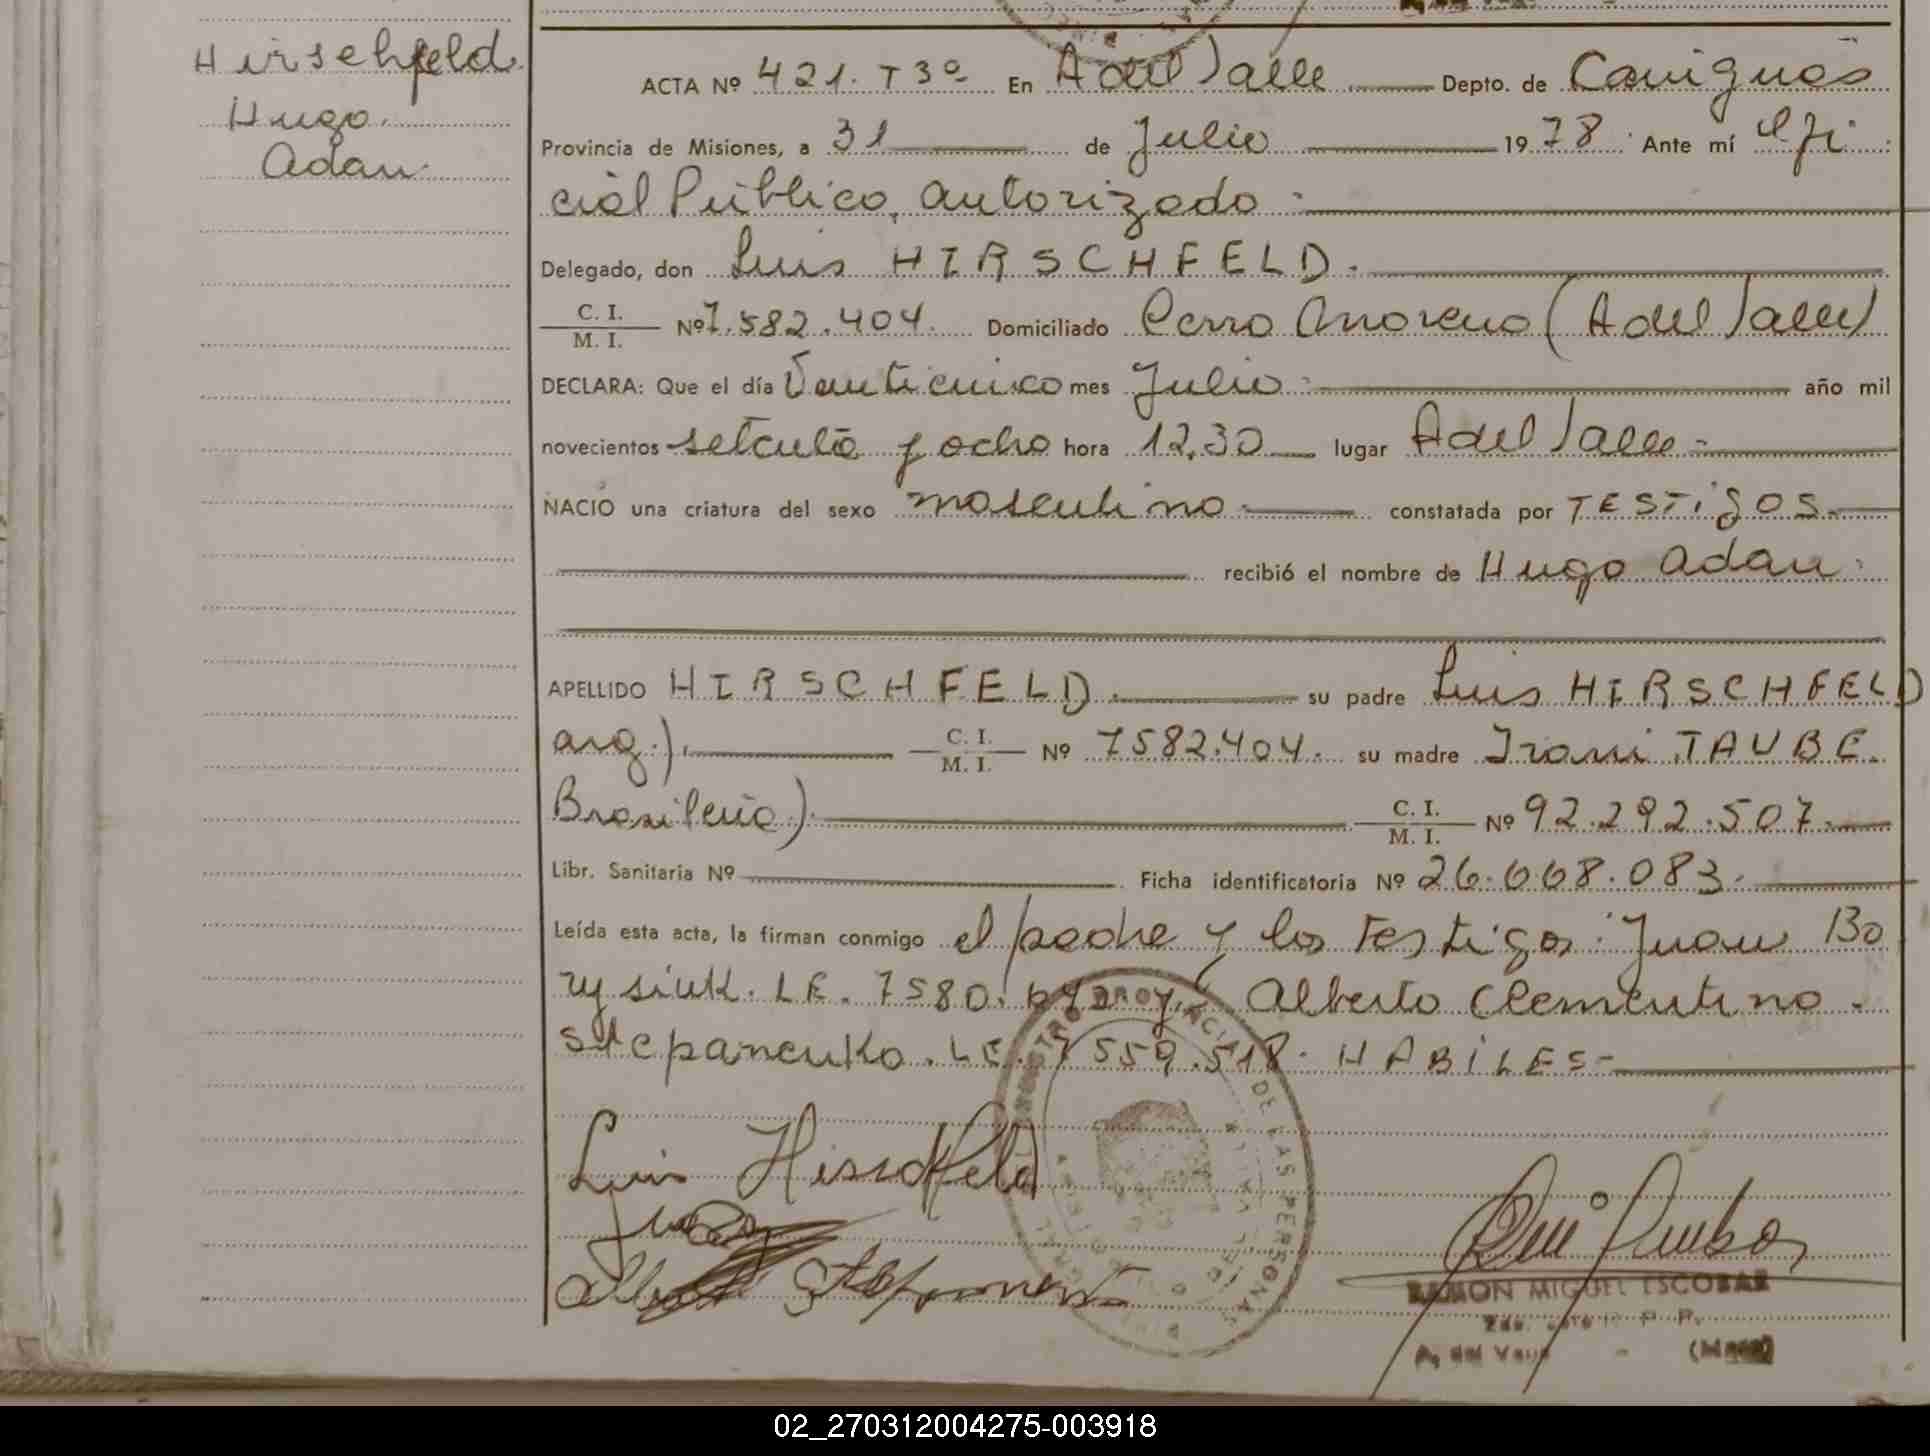 Hirschfeld
Hugo
Adan
ACTA Nº 421. T3º En A del Valle Depto. de Cainguas
Provincia de Misiones, a 31 de Julio 1978. Ante mí Ofi
cial Público, autorizado
Delegado, don Luis HIRSCHFELD.
C. I.
M. I. Nº 7.582.404. Domiciliado Cerro Moreno (A del Valle)
DECLARA: Que el día Veinticinco mes Julio año mil
novecientos setenta y ocho hora 12,30 lugar A del Valle
NACIO una criatura del sexo masculino constatada por TESTigos
recibió el nombre de Hugo Adan
APELLIDO HIRSCHFELD. su padre Luis HIRSCHFELD
arg.). C. I.
M. I. Nº 7582.404. su madre Irani TAUBE.
Brasileña). C. I.
M. I. Nº 92.292.507.
Libr. Sanitaria Nº Ficha identificatoria Nº 26.668.083.
Leída esta acta, la firman conmigo el padre y los Testigos: Juan Bo
rysiuk. LE. 7580. y Alberto Clementino
Stepanenko. LE. 7559.518. HABILES
REGISTRO PROVINCIAL DE LAS PERSONAS
Luis Hirschfeld
RAMON MIGUEL ESCOBAR
A. del Valle (Mnes)
02_270312004275-003918